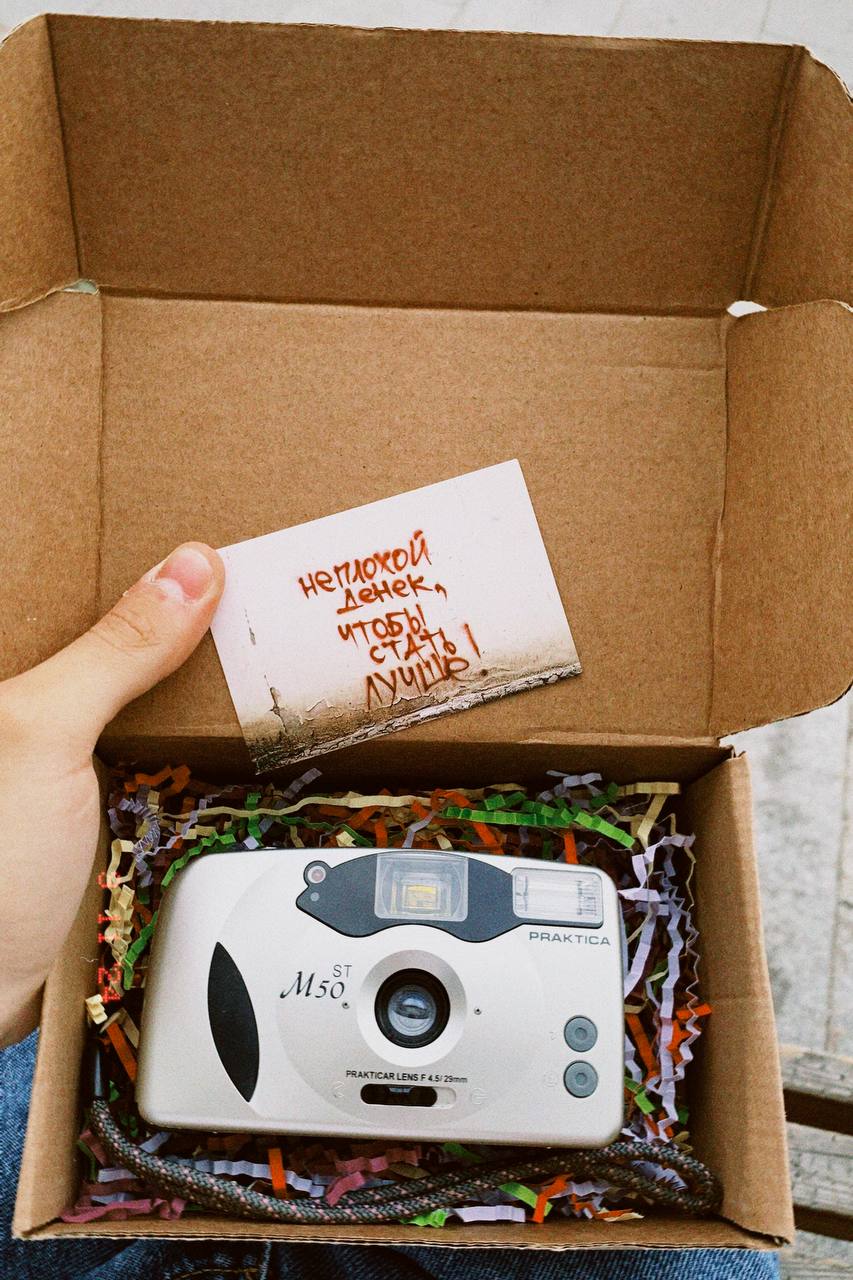 неплохой
денек,
чтобы
стать
лучше!
PRAKTICA
ST
M50
PRAKTICAR LENS F 4.5/ 29mm